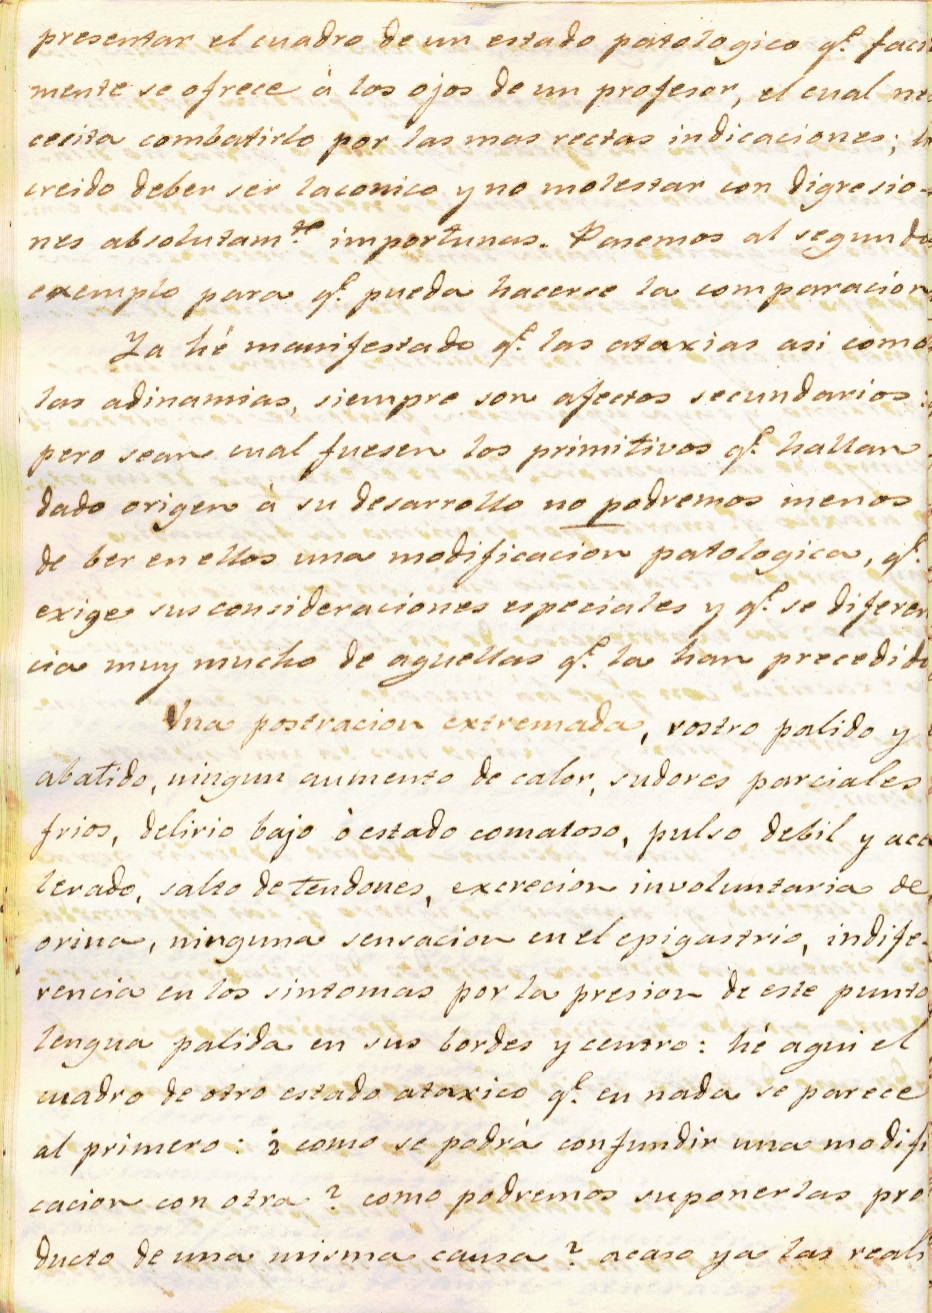 presentar el cuadro de un estado patologico q.e facil
mente se ofrece á los ojos de un profesor, el cual ne
cecita combatirlo por las mas rectas indicaciones; h
creido deber ser laconico y no molestar con digresio-
nes absolutam.te importunas. Pasemos al segundo
exemplo para q.e pueda hacerse la comparacion
Ya hé manifestado q.e las ataxias asi como
las adinamias, siempre son afectos secundarios:
pero sean cual fuesen los primitivos q.e hallan
dado origen à su desarrollo no podremos menos
de ber en ellos una modificacion patologica, q.e
exige sus consideraciones especiales y q.e se diferen
cia muy mucho de aquellas q.e la han precedido
Una postracion extremada, rostro palido y
abatido, ningun aumento de calor, sudores parciales
frios, delirio bajo ò estado comatoso, pulso debil y ace
lerado, salto de tendones, excrecion involuntaria de
orina, ninguna sensacion en el epigastrio, indife-
rencia en los sintomas por la presion de este punto
lengua palida en sus bordes y centro: hé aqui el
cuadro de otro estado ataxico q.e en nada se parece
al primero: ¿ como se podrà confundir una modifi
cacion con otra? como podremos suponerlas pro
ducto de una misma causa? acaso ya las reali